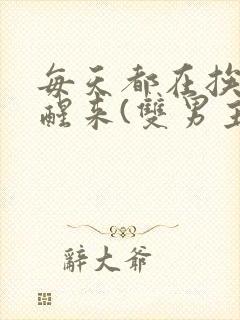 每天都在挨
醒来(雙男主
辭大爷